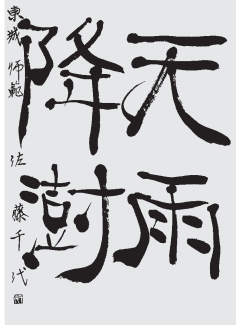 天雨
降澍
東城 師範 佐藤千代